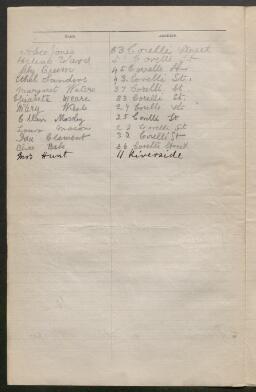 NAME ADDRESS
Alice Jones 53 Corelli Street
Ward 51 Corelli St
Green 45 Corelli St
Ethel Sanders 43 Corelli St.
Margaret Waters 37 Corelli St
Elizabeth Weare 33 Corelli St.
Mary West 29 Corelli St
Ellen Morley 25 Corelli St
Louie Mason 22 Corelli St
Ida Clement 32 Corelli St
36 Corelli Street
Mrs Hunt 11 Riverside